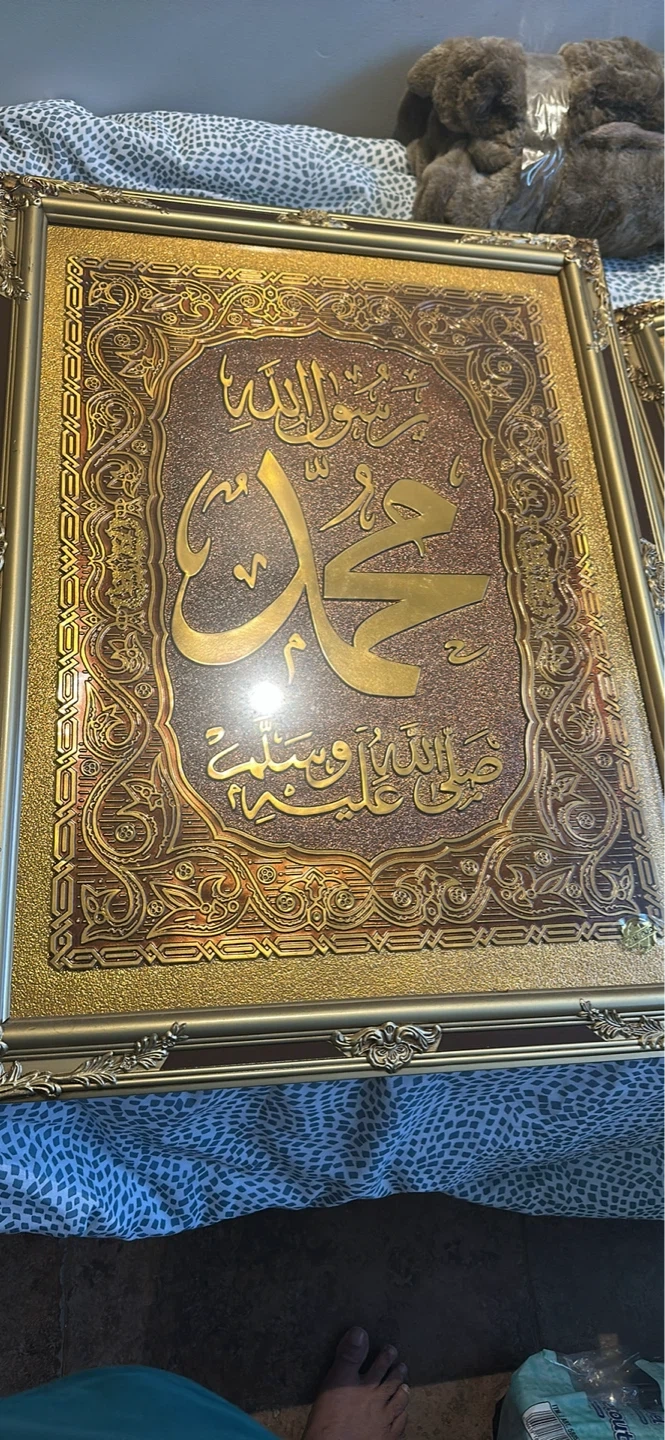 رَسُولُ اللَّه
مُحَمَّد
صَلَّى اللَّهُ عَلَيْهِ وَسَلَّم